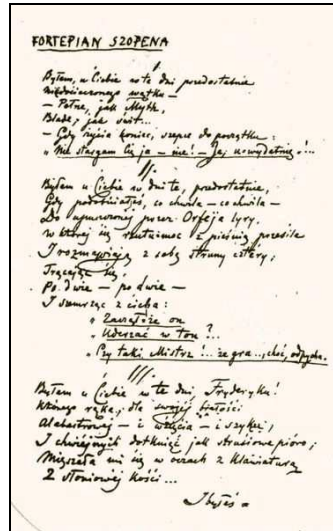 FORTEPIAN SZOPENA
Byłem u Ciebie w te dni przedostatnie
Niedocieczonego wątku —
— Pełne, jak Mythe,
Blade, jak świt...
— Gdy życia koniec, szepce do początku:
„Nie stargam Cię ja — nie! — Ja, u-wydatnię!...
II.
Byłem u Ciebie w dni te, przedostatnie,
Gdy podobniałeś, co chwila — co chwila —
Do upuszczonej przez Orfeja liry,
W której się rzutu-moc z pieśnią przesila
I rozmawiają z sobą struny cztéry,
Trącając się,
Po dwie — po dwie —
I szemrząc z cicha:
„Zacząłże on
„Uderzać w ton?...
„Czy taki Mistrz!... że gra... choć, odpycha..
III.
Byłem u Ciebie w te dni, Fryderyku!
Którego ręka, dla swojéj białości
Alabastrowej — i wzięcia — i szyku,
I chwiejnych dotknięć jak strusiowe pióro,
Mięszała mi się w oczach z klawiaturą
Z słoniowéj kości...
I byłeś